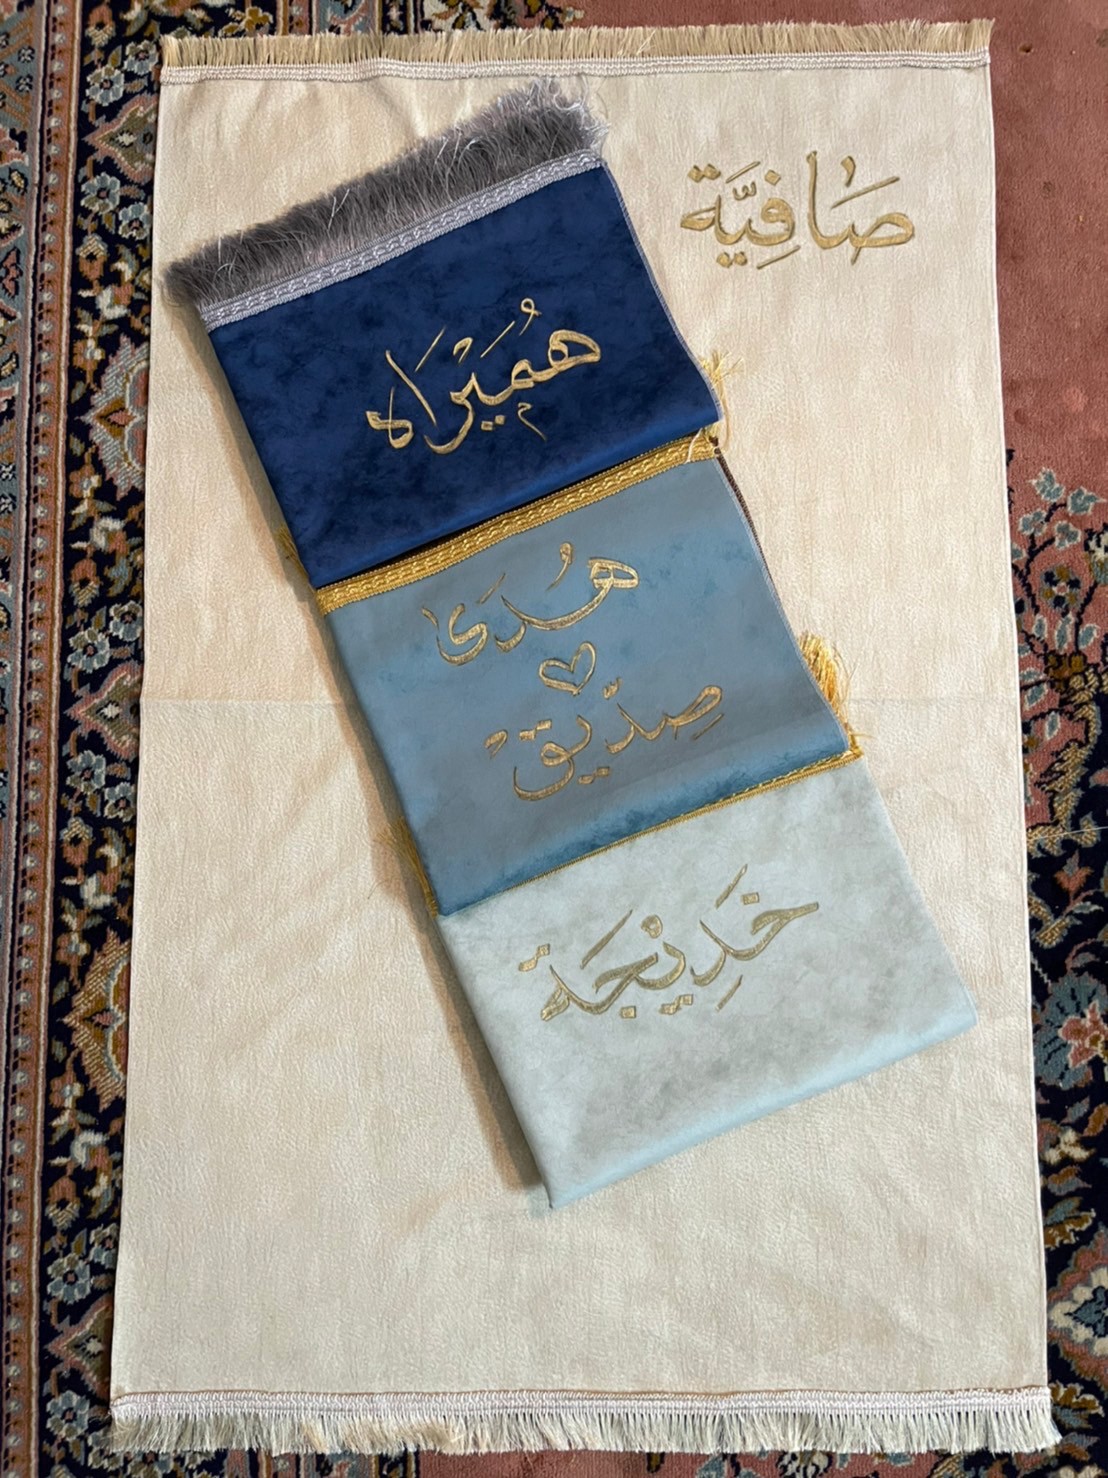 صَافِيَّة
هُمَيْرَاه
هُدَى
صِدِّيقْ
خَدِيْجَة